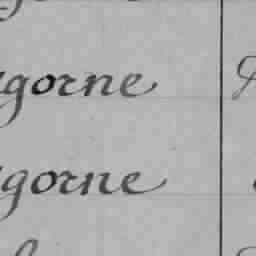 gorne
gorne